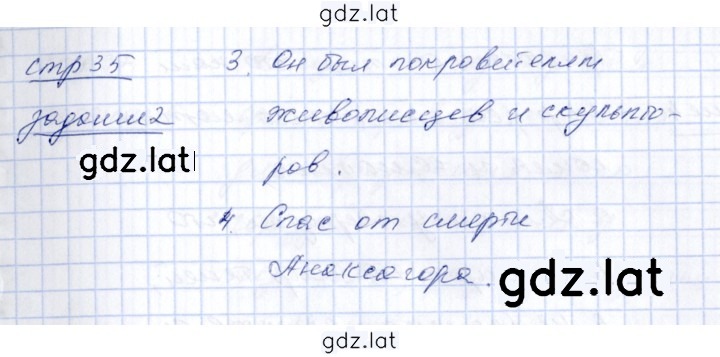 gdz.lat
стр 35 3. Он был покровителем
задание 2 живописцев и скульпто-
gdz.lat
ров.
4. Спас от смерти
Анаксагора.
gdz.lat
gdz.lat